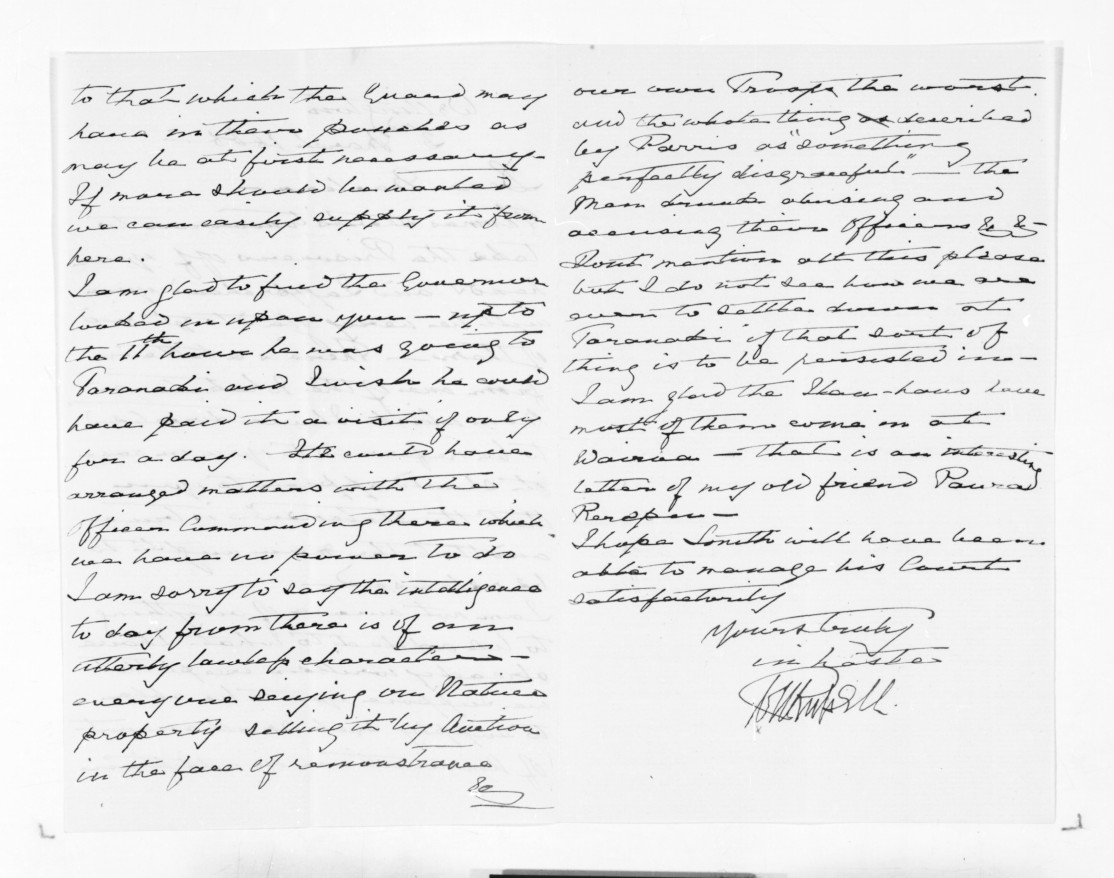 to that which the Guard may
have in their pouches as
may be at first necessary -
If more should be wanted
we can easily supply it from
here.
I am glad to find the Governor
looked in upon you - up to
the 11th hour he was going to
Taranaki and I wish he could
have paid it a visit if only
for a day. He could have
arranged matters with the
Officer Commanding there which
we have no power to do
I am sorry to say the intelligence
to day from there is of an
utterly lawless character -
everyone seizing on Native
property selling it by Auction
in the face of remonstrance
&c
our own Troops the worst
and the whole thing is described
by Parris as "something
perfectly disgraceful" - the
Men drunk abusing and
accusing their Officers &c &c -
Dont mention all this please
but I do not see how we are
ever to settle down at
Taranaki if that sort of
thing is to be persisted in -
I am glad the Hau-haus have
most of them come in at
Wairoa - that is an interesting
letter of my old friend
I hope Smith will have been
able to manage his Court
satisfactorily
Yours truly
in haste
Russell.